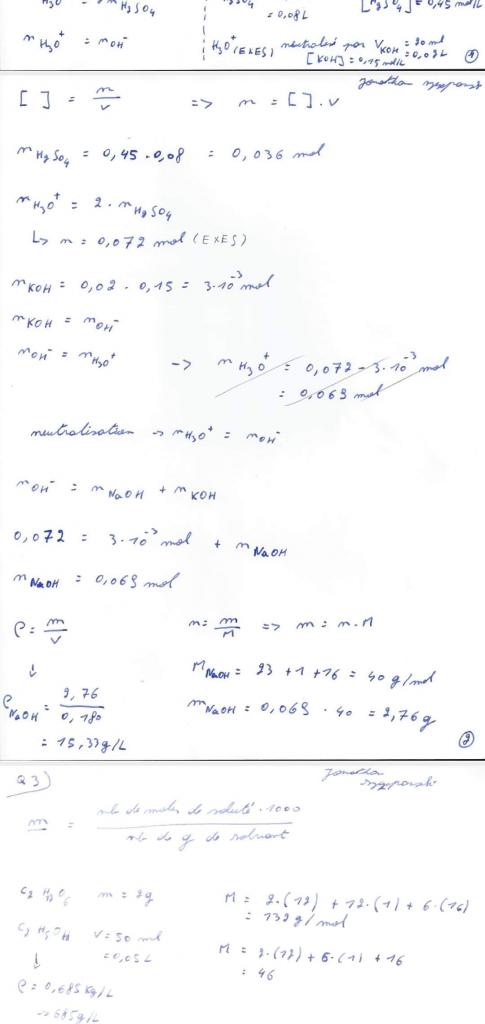 = 0,08L
n H3O+ = n OH-
H3O+ (EXES) neutralisé par V KOH = 20 ml
[KOH] = 0,15 mol/L = 0,02L
1
Jonathan
[ ] = n/v => n = [ ] . v
n H2SO4 = 0,45 . 0,08 = 0,036 mol
n H3O+ = 2 . n H2SO4
↳ n = 0,072 mol (EXES)
n KOH = 0,02 . 0,15 = 3.10^-3 mol
n KOH = n OH-
n OH- = n H3O+ -> n H3O+ = 0,072 - 3.10^-3 mol
= 0,069 mol
neutralisation -> n H3O+ = n OH-
n OH- = n NaOH + n KOH
0,072 = 3.10^-3 mol + n NaOH
n NaOH = 0,069 mol
ρ = m/v
n = m/M => m = n.M
↓
M NaOH = 23 + 1 + 16 = 40 g/mol
ρ NaOH = 2,76 / 0,180
m NaOH = 0,069 . 40 = 2,76 g
= 15,33 g/L
2
Q3)
Jonathan
m = nb de moles de soluté . 1000 / nb de g de solvant
C2 H12 O6 m = 2g
M = 2.(12) + 12.(1) + 6.(16)
= 132 g/mol
C2 H5OH V = 50 ml
= 0,05L
M = 2.(12) + 6.(1) + 16
= 46
↓
ρ = 0,685 Kg/L
-> 685 g/L